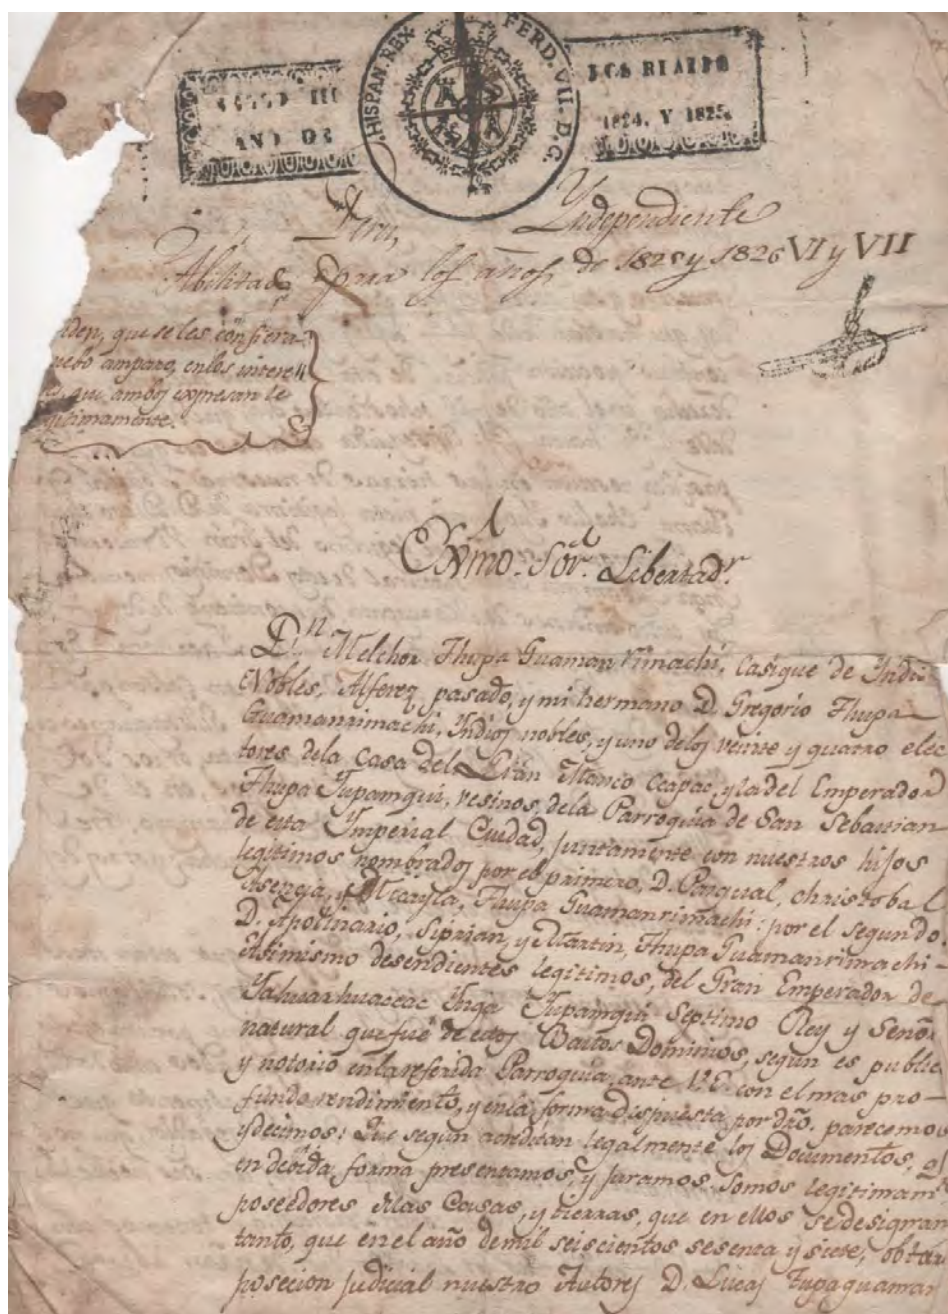 HISPAN. REX. FERD. VII. D. G.
SELLO III
AÑO DE
DOS REALES
1824, Y 1825.
Peru, Yndependiente
Abilitado para los años de 1825 y 1826 VI y VII
iden, que se les confiera
nuebo amparo, en los intere
s, que ambos expresan le
gitimamente.
Exmo. Sor. Libertadr.
Dn. Melchor Thupa Guamanrimachi, Casique de Yndio
Nobles, Alferez pasado, y mi hermano D. Gregorio Thupa
Guamanrimachi, Yndios nobles, y uno delos veinte y quatro elec
tores dela Casa del Gran Manco Ccapac, y la del Emperador
Thupa Yupamqui, vesinos, dela Parroquia de San Sebastian
de esta Ymperial Ciudad, juntamente con nuestros hijos
legitimos nombrados por el primero, D. Pasqual, christobal
Asencia, y Micayla, Thupa Guamanrimachi: por el segundo.
D. Apolinario, Siprian, y Martin, Thupa Guamanrimachi-
Asimismo desendientes legitimos, del Gran Emperador de
Yahuarhuaccac Ynga Yupamqui Septimo Rey y Señor
natural que fué de estos Bastos Dominios, segun es public
y notorio enla referida Parroquia, ante V.E. con el mas pro-
fundo rendimiento, y enla forma dispuesta por dro. parecemos
y decimos: Que según acreditan legalmente los Documentos, q.
en debida forma presentamos, y juramos. Somos legitimamte
poseedores delas Casas, y tierras, que en ellos se designan
tanto, que en el año de mil seiscientos sesenta y siete, obtu
posecion judicial nuestro Autores D. Lucas Tupaguaman